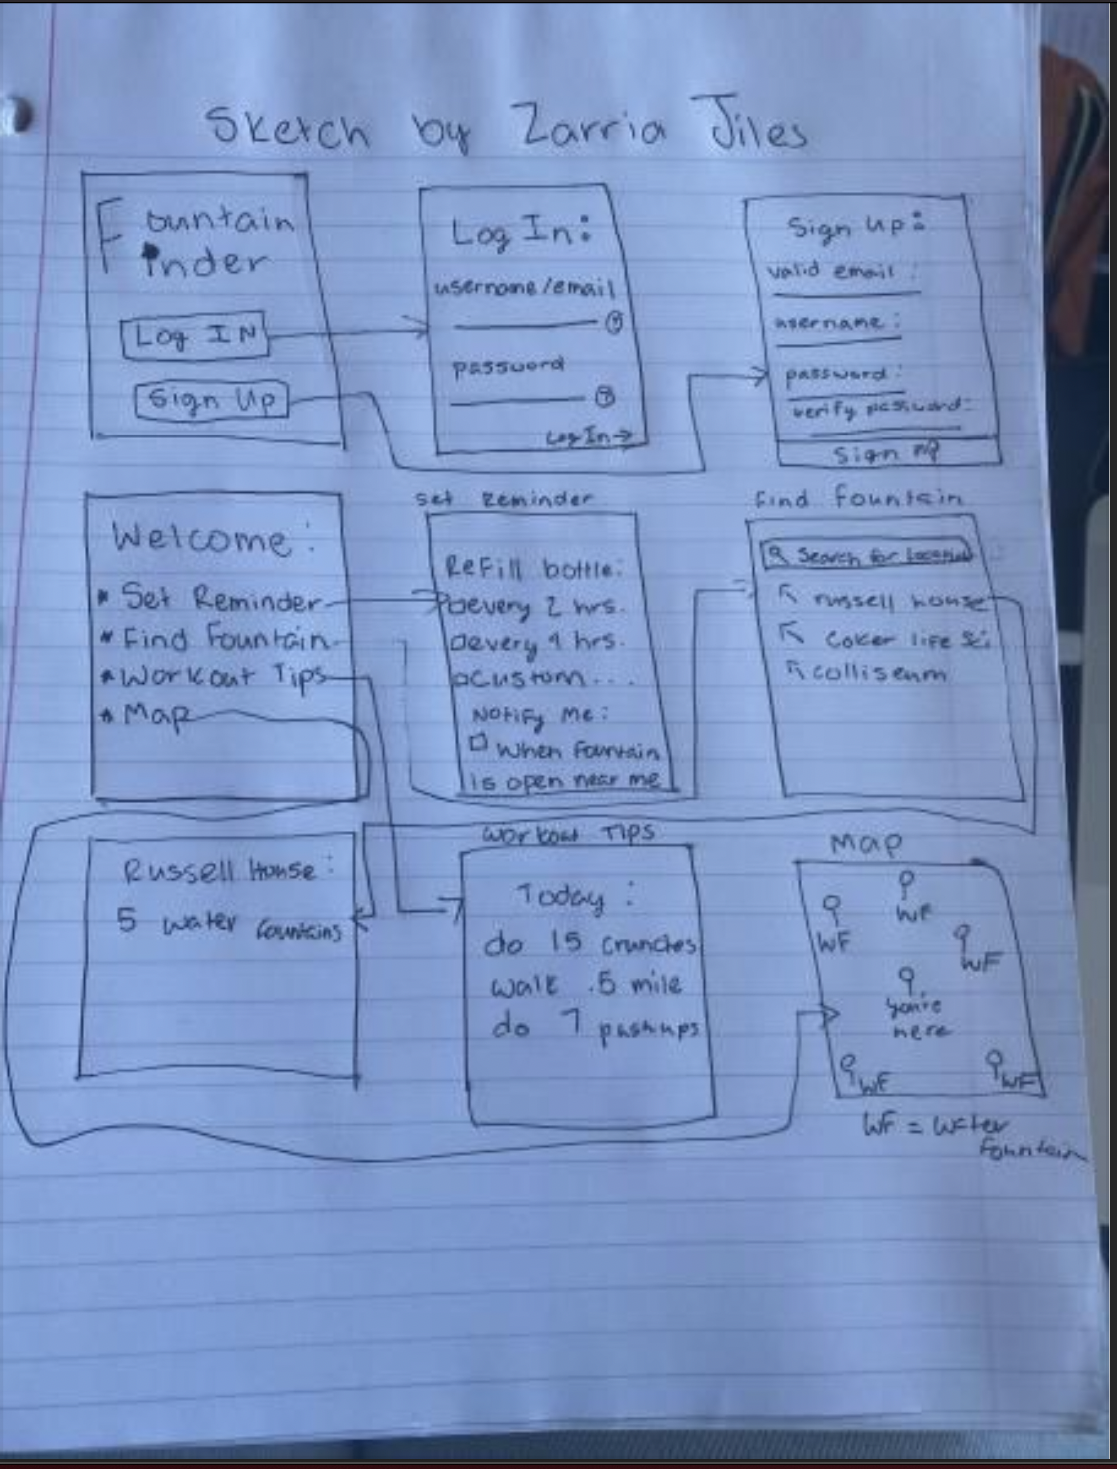 Sketch by Zarria Jiles
Fountain
Finder
Log IN
Sign Up
Log In:
username/email
password
Log In→
Sign Up:
valid email:
username:
password:
verify password:
Sign up
Welcome:
* Set Reminder
* Find Fountain
* Workout Tips
* Map
Set Reminder
Refill bottle:
every 2 hrs.
every 4 hrs.
custom...
Notify me:
When fountain
is open near me
Find fountain
Search for location
russell house
coker life sci
colliseum
Russell House:
5 water fountains
Workout Tips
Today:
do 15 crunches
walk .5 mile
do 7 pushups
Map
WF
WF
WF
you're
here
WF
WF
WF = Water
fountain